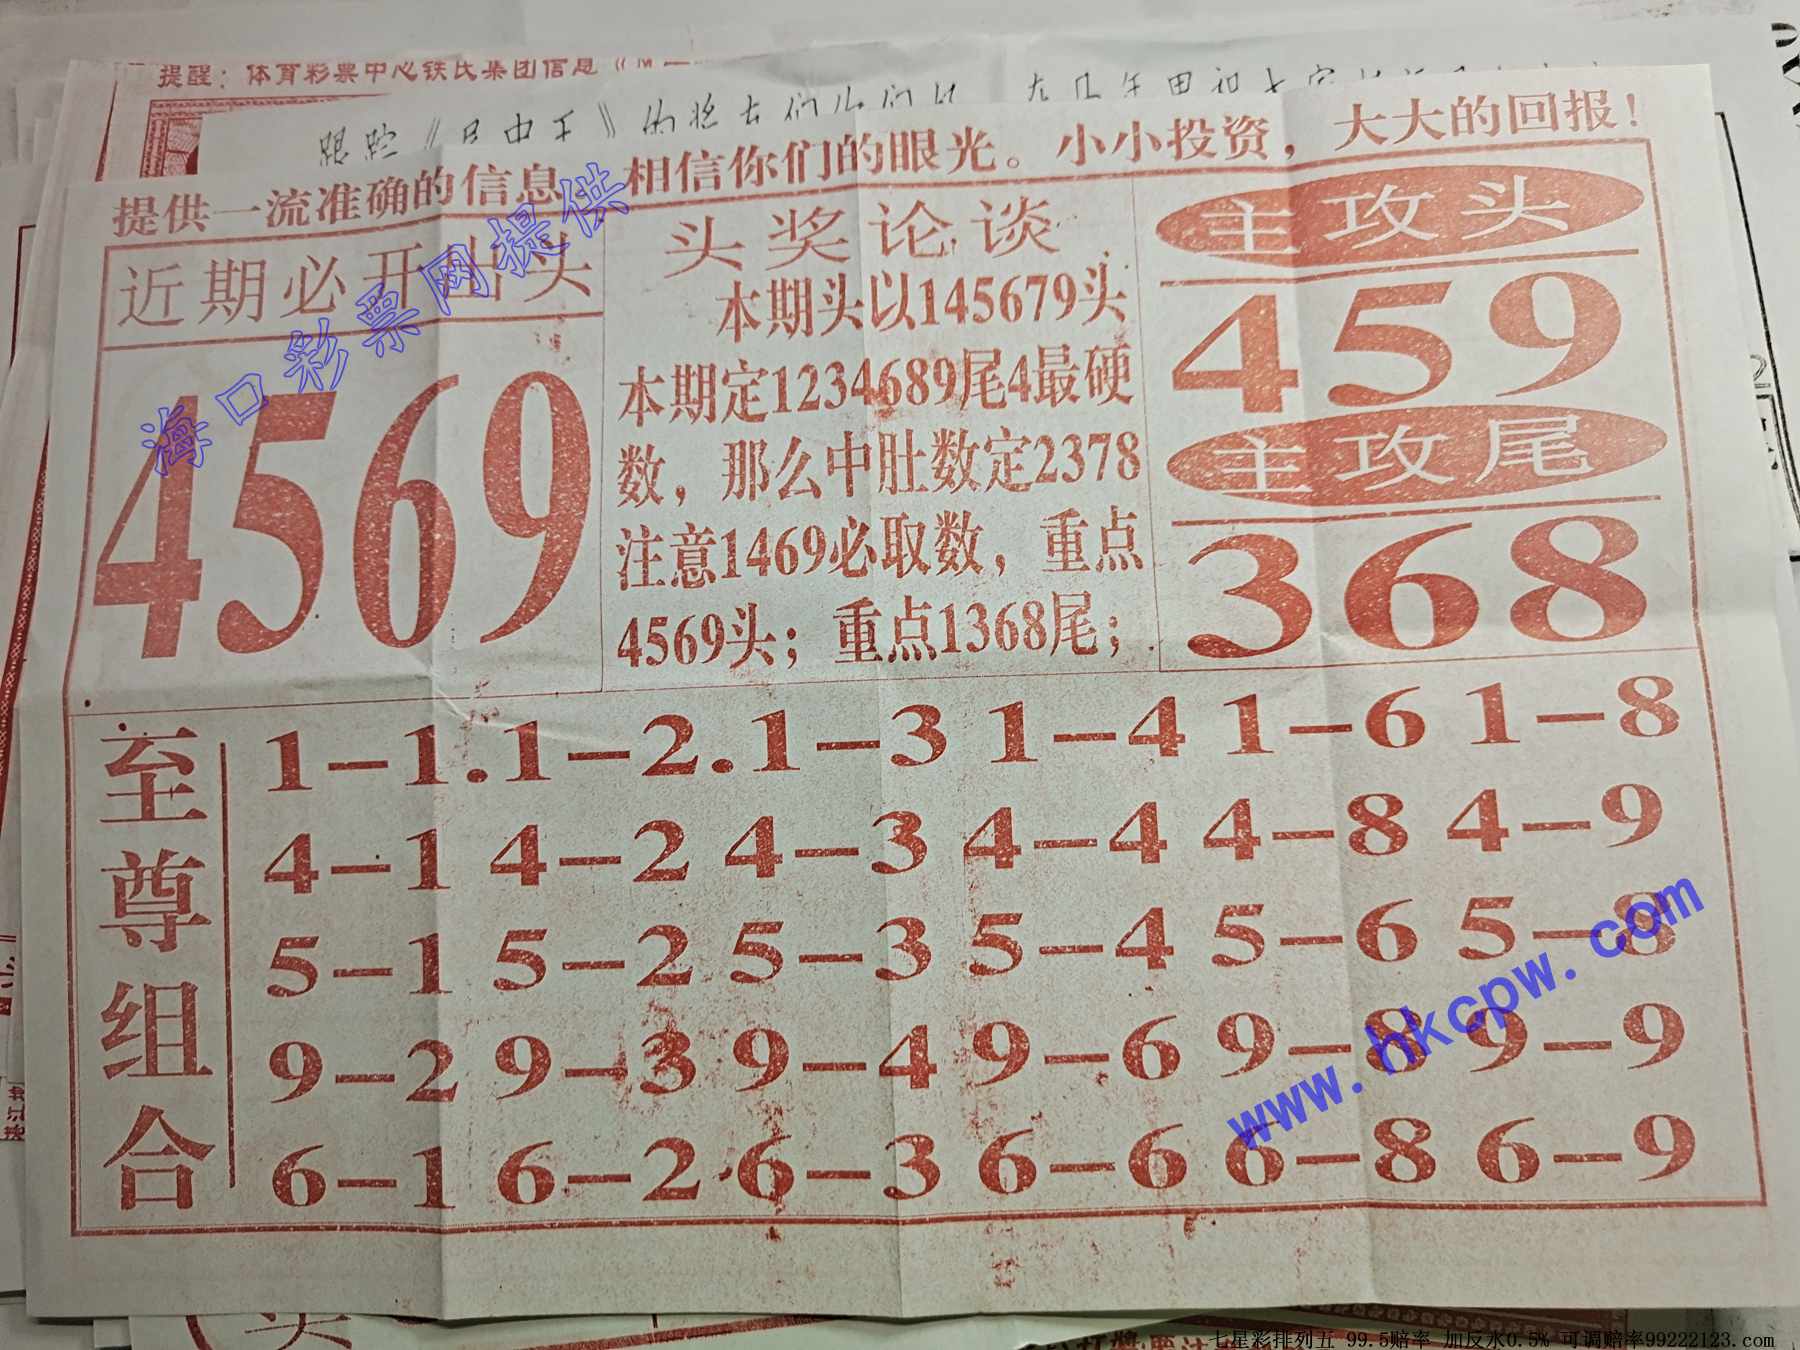 提醒：体育彩票中心铁氏集团信息《
跟踪《
提供一流准确的信息 相信你们的眼光。小小投资，大大的回报！
近期必开出头
4569
头奖论谈
本期头以145679头
本期定1234689尾4最硬
数，那么中肚数定2378
注意1469必取数，重点
4569头；重点1368尾；
主攻头
459
主攻尾
368
至尊组合
1-1.1-2.1-3 1-4 1-6 1-8
4-1 4-2 4-3 4-4 4-8 4-9
5-1 5-2 5-3 5-4 5-6 5-8
9-2 9-3 9-4 9-6 9-8 9-9
6-1 6-2 6-3 6-6 6-8 6-9
海口彩票网提供
www.hkcpw.com
七星彩排列五 99.5赔率 加反水0.5% 可调赔率99222123.com